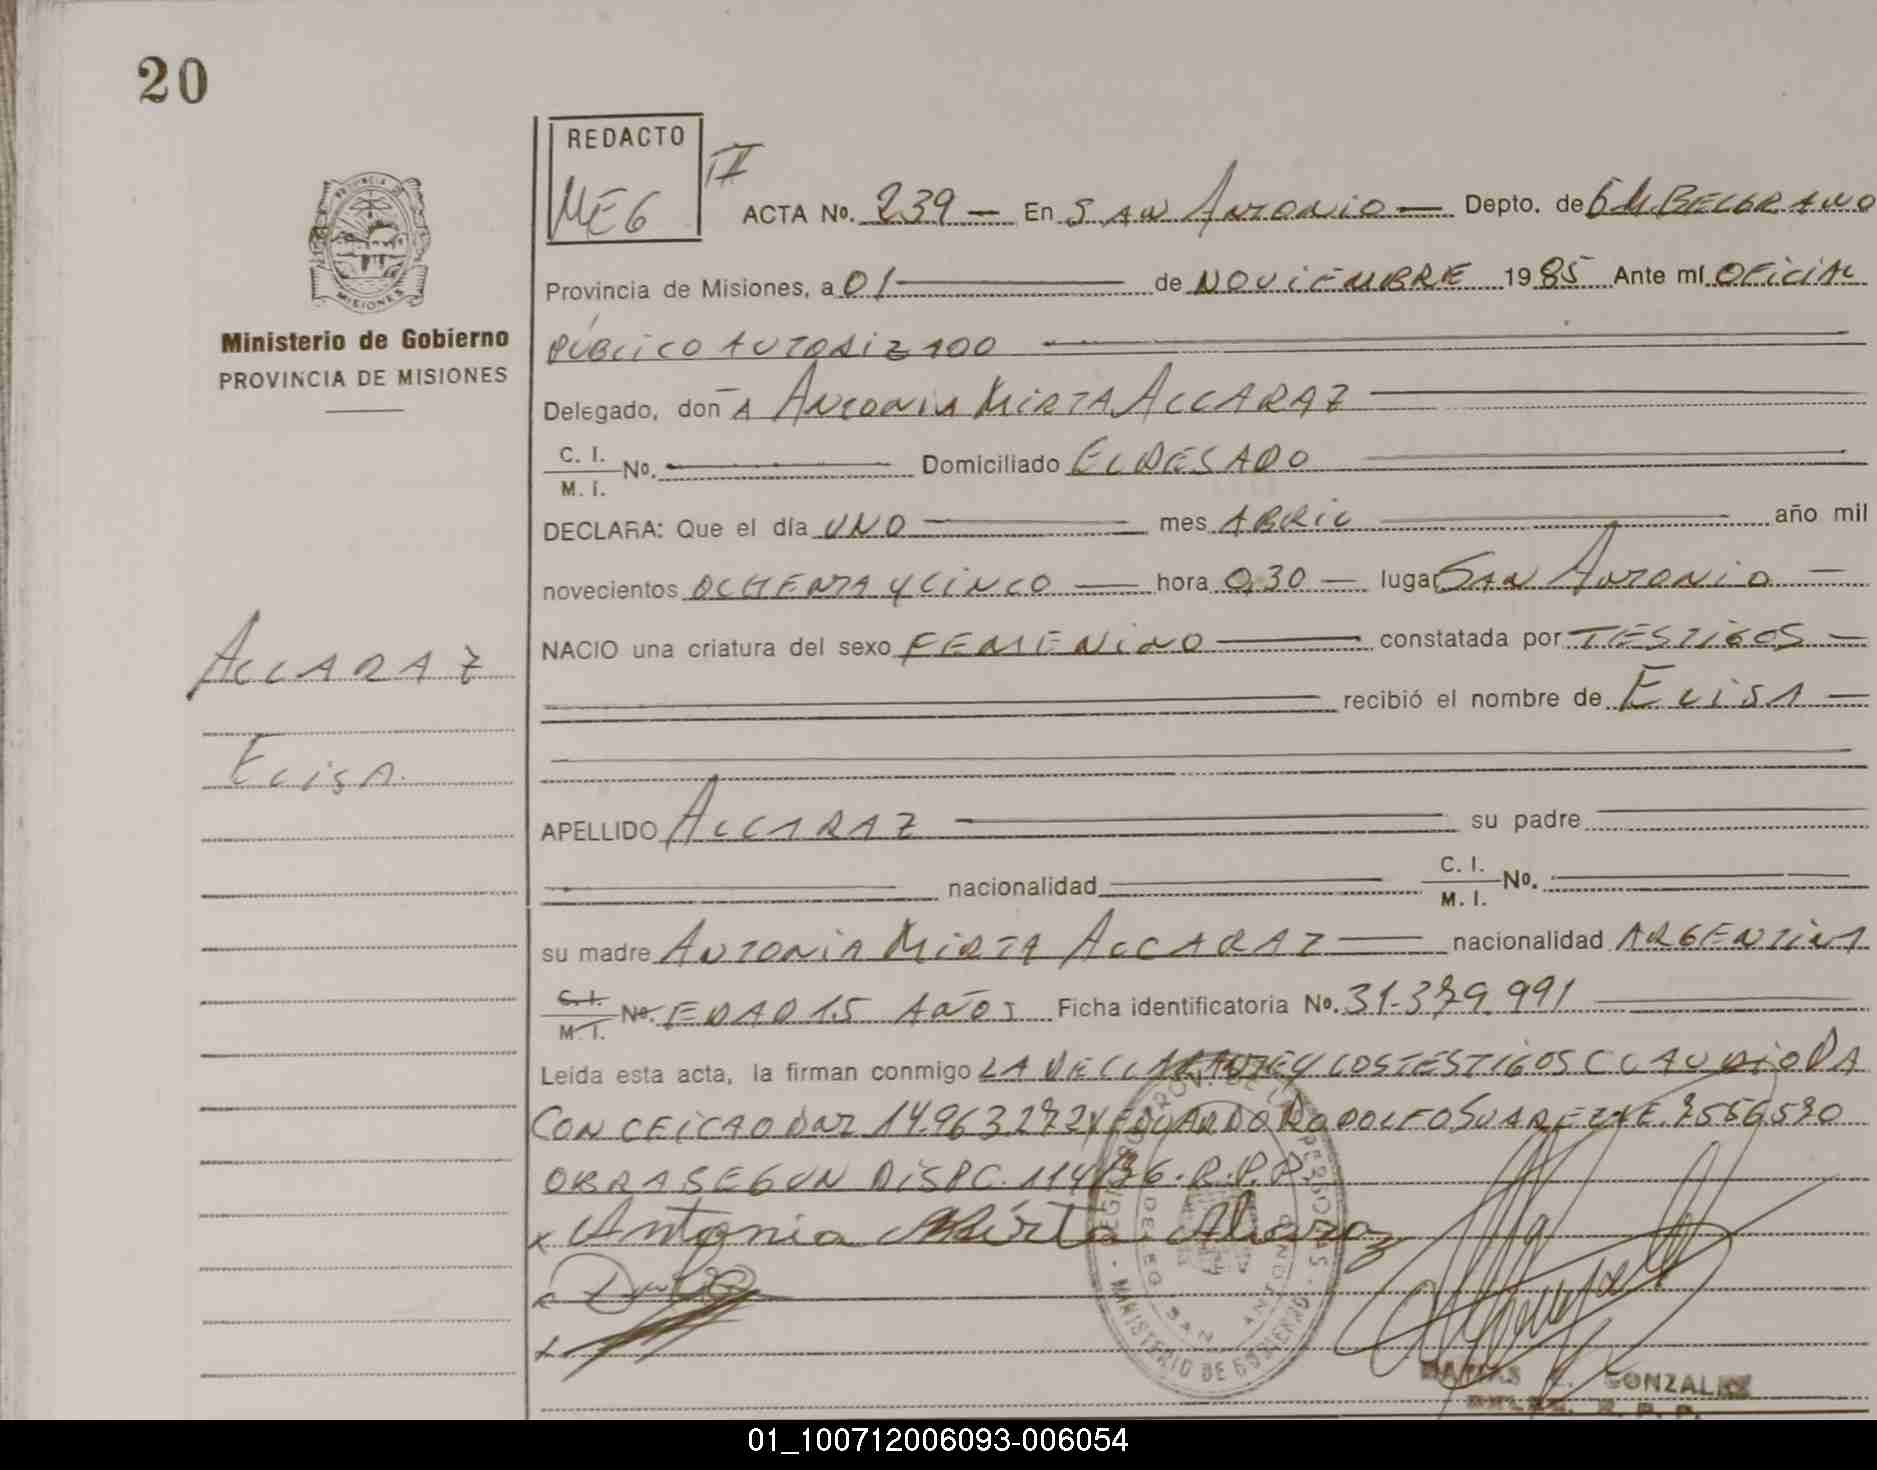 20
REDACTO
MEG
II
ACTA No. 239 — En SAN ANTONIO — Depto. de GM BELGRANO
Provincia de Misiones, a 01 — de NOVIEMBRE 1985 Ante mí OFICIAL
PÚBLICO AUTORIZADO
Ministerio de Gobierno
PROVINCIA DE MISIONES
Delegado, don A ANTONIA MIRTA ALCARAZ
C. I.
M. I.
No. — Domiciliado EL DESEADO
DECLARA: Que el día UNO — mes ABRIL — año mil
novecientos OCHENTA Y CINCO — hora 0,30 — lugar SAN ANTONIO —
ALCARAZ
NACIO una criatura del sexo FEMENINO — constatada por TESTIGOS —
recibió el nombre de ELISA —
ELISA
APELLIDO ALCARAZ — su padre
nacionalidad — C. I.
M. I. No.
su madre ANTONIA MIRTA ALCARAZ — nacionalidad ARGENTINA
C. I.
M. I.
No. EDAD 15 AÑOS Ficha identificatoria No. 31.379.991
Leída esta acta, la firman conmigo LA DECLARANTE Y LOS TESTIGOS CLAUDIO DA
CONCEICAO DNI 14.963.272 Y EDUARDO RODOLFO SUAREZ L.E. 7556570
OBRA SEGUN DISPC. 114/36. R.P.P.
x Antonia Mirta Alcaraz
MINISTERIO DE GOBIERNO
SAN ANTONIO
GONZALEZ
R. P. P.
01_100712006093-006054